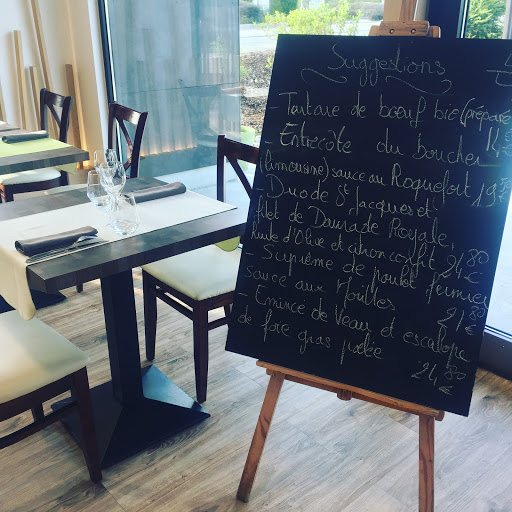 Suggestions
- Tartare de bœuf bio (préparé
- Entrecôte du boucher 14
(limousine) sauce au Roquefort 19
- Duo de St Jacques et
filet de Daurade Royale,
Huile d'Olive et citron confit 24 80 €
- Suprême de poulet fermier
sauce aux Morilles 21 80 €
- Emincé de Veau et escalope
de foie gras poêlée
24 80 €